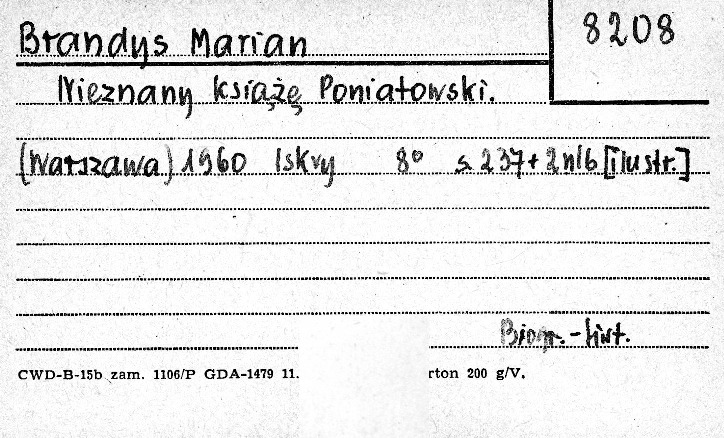 Brandys Marian
8208
Nieznany książę Poniatowski.
(Warszawa) 1960 Iskry 8° s. 237 + 2 nlb [ilustr.]
Biogr. - hist.
CWD-B-15b zam. 1106/P GDA-1479 11. rton 200 g/V.